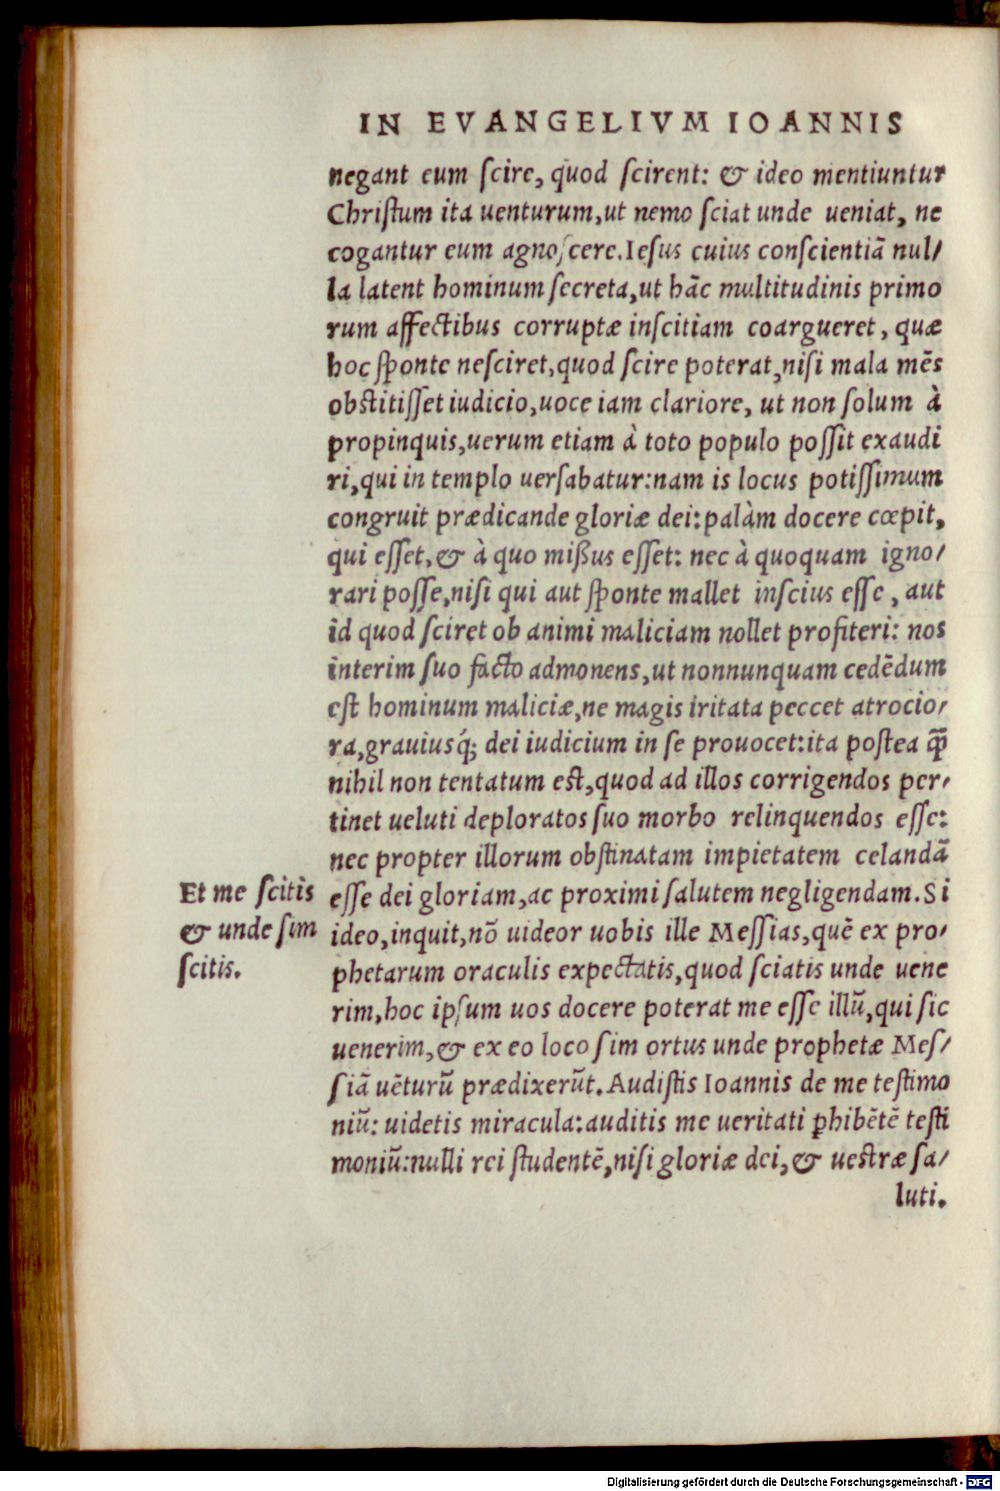 IN EVANGELIVM IOANNIS
negant eum ſcire, quod ſcirent: & ideo mentiuntur
Chriſtum ita uenturum,ut nemo ſciat unde ueniat, ne
cogantur eum agnoſcere.Ieſus cuius conſcientiã nul/
la latent hominum ſecreta,ut hãc multitudinis primo
rum affectibus corruptæ inſcitiam coargueret, quæ
hoc ſponte neſciret,quod ſcire poterat,niſi mala mẽs
obſtitiſſet iudicio,uoce iam clariore, ut non ſolum à
propinquis,uerum etiam à toto populo poſſit exaudi
ri,qui in templo uerſabatur:nam is locus potiſſimum
congruit prædicande gloriæ dei:palàm docere cœpit,
qui eſſet,& à quo mißus eſſet: nec à quoquam igno/
rari poſſe,niſi qui aut ſponte mallet inſcius eſſe, aut
id quod ſciret ob animi maliciam nollet profiteri: nos
interim ſuo facto admonens,ut nonnunquam cedẽdum
eſt hominum maliciæ,ne magis iritata peccet atrocio/
ra,grauiusq́; dei iudicium in ſe prouocet:ita poſtea ꝙ̃
nihil non tentatum eſt,quod ad illos corrigendos per/
tinet ueluti deploratos ſuo morbo relinquendos eſſe:
nec propter illorum obſtinatam impietatem celandã
Et me ſcitis
& unde ſim
ſcitis.
eſſe dei gloriam,ac proximi ſalutem negligendam.Si
ideo,inquit,nõ uideor uobis ille Meſſias,quẽ ex pro/
phetarum oraculis expectatis,quod ſciatis unde uene
rim,hoc ipſum uos docere poterat me eſſe illũ,qui ſic
uenerim,& ex eo loco ſim ortus unde prophetæ Meſ/
ſiã uẽturũ prædixerũt.Audiſtis Ioannis de me teſtimo
niũ: uidetis miracula:auditis me ueritati ꝑhibẽtẽ teſti
moniũ:nulli rei ſtudentẽ,niſi gloriæ dei,& ueſtræ ſa/
luti.
Digitalisierung gefördert durch die Deutsche Forschungsgemeinschaft - DFG